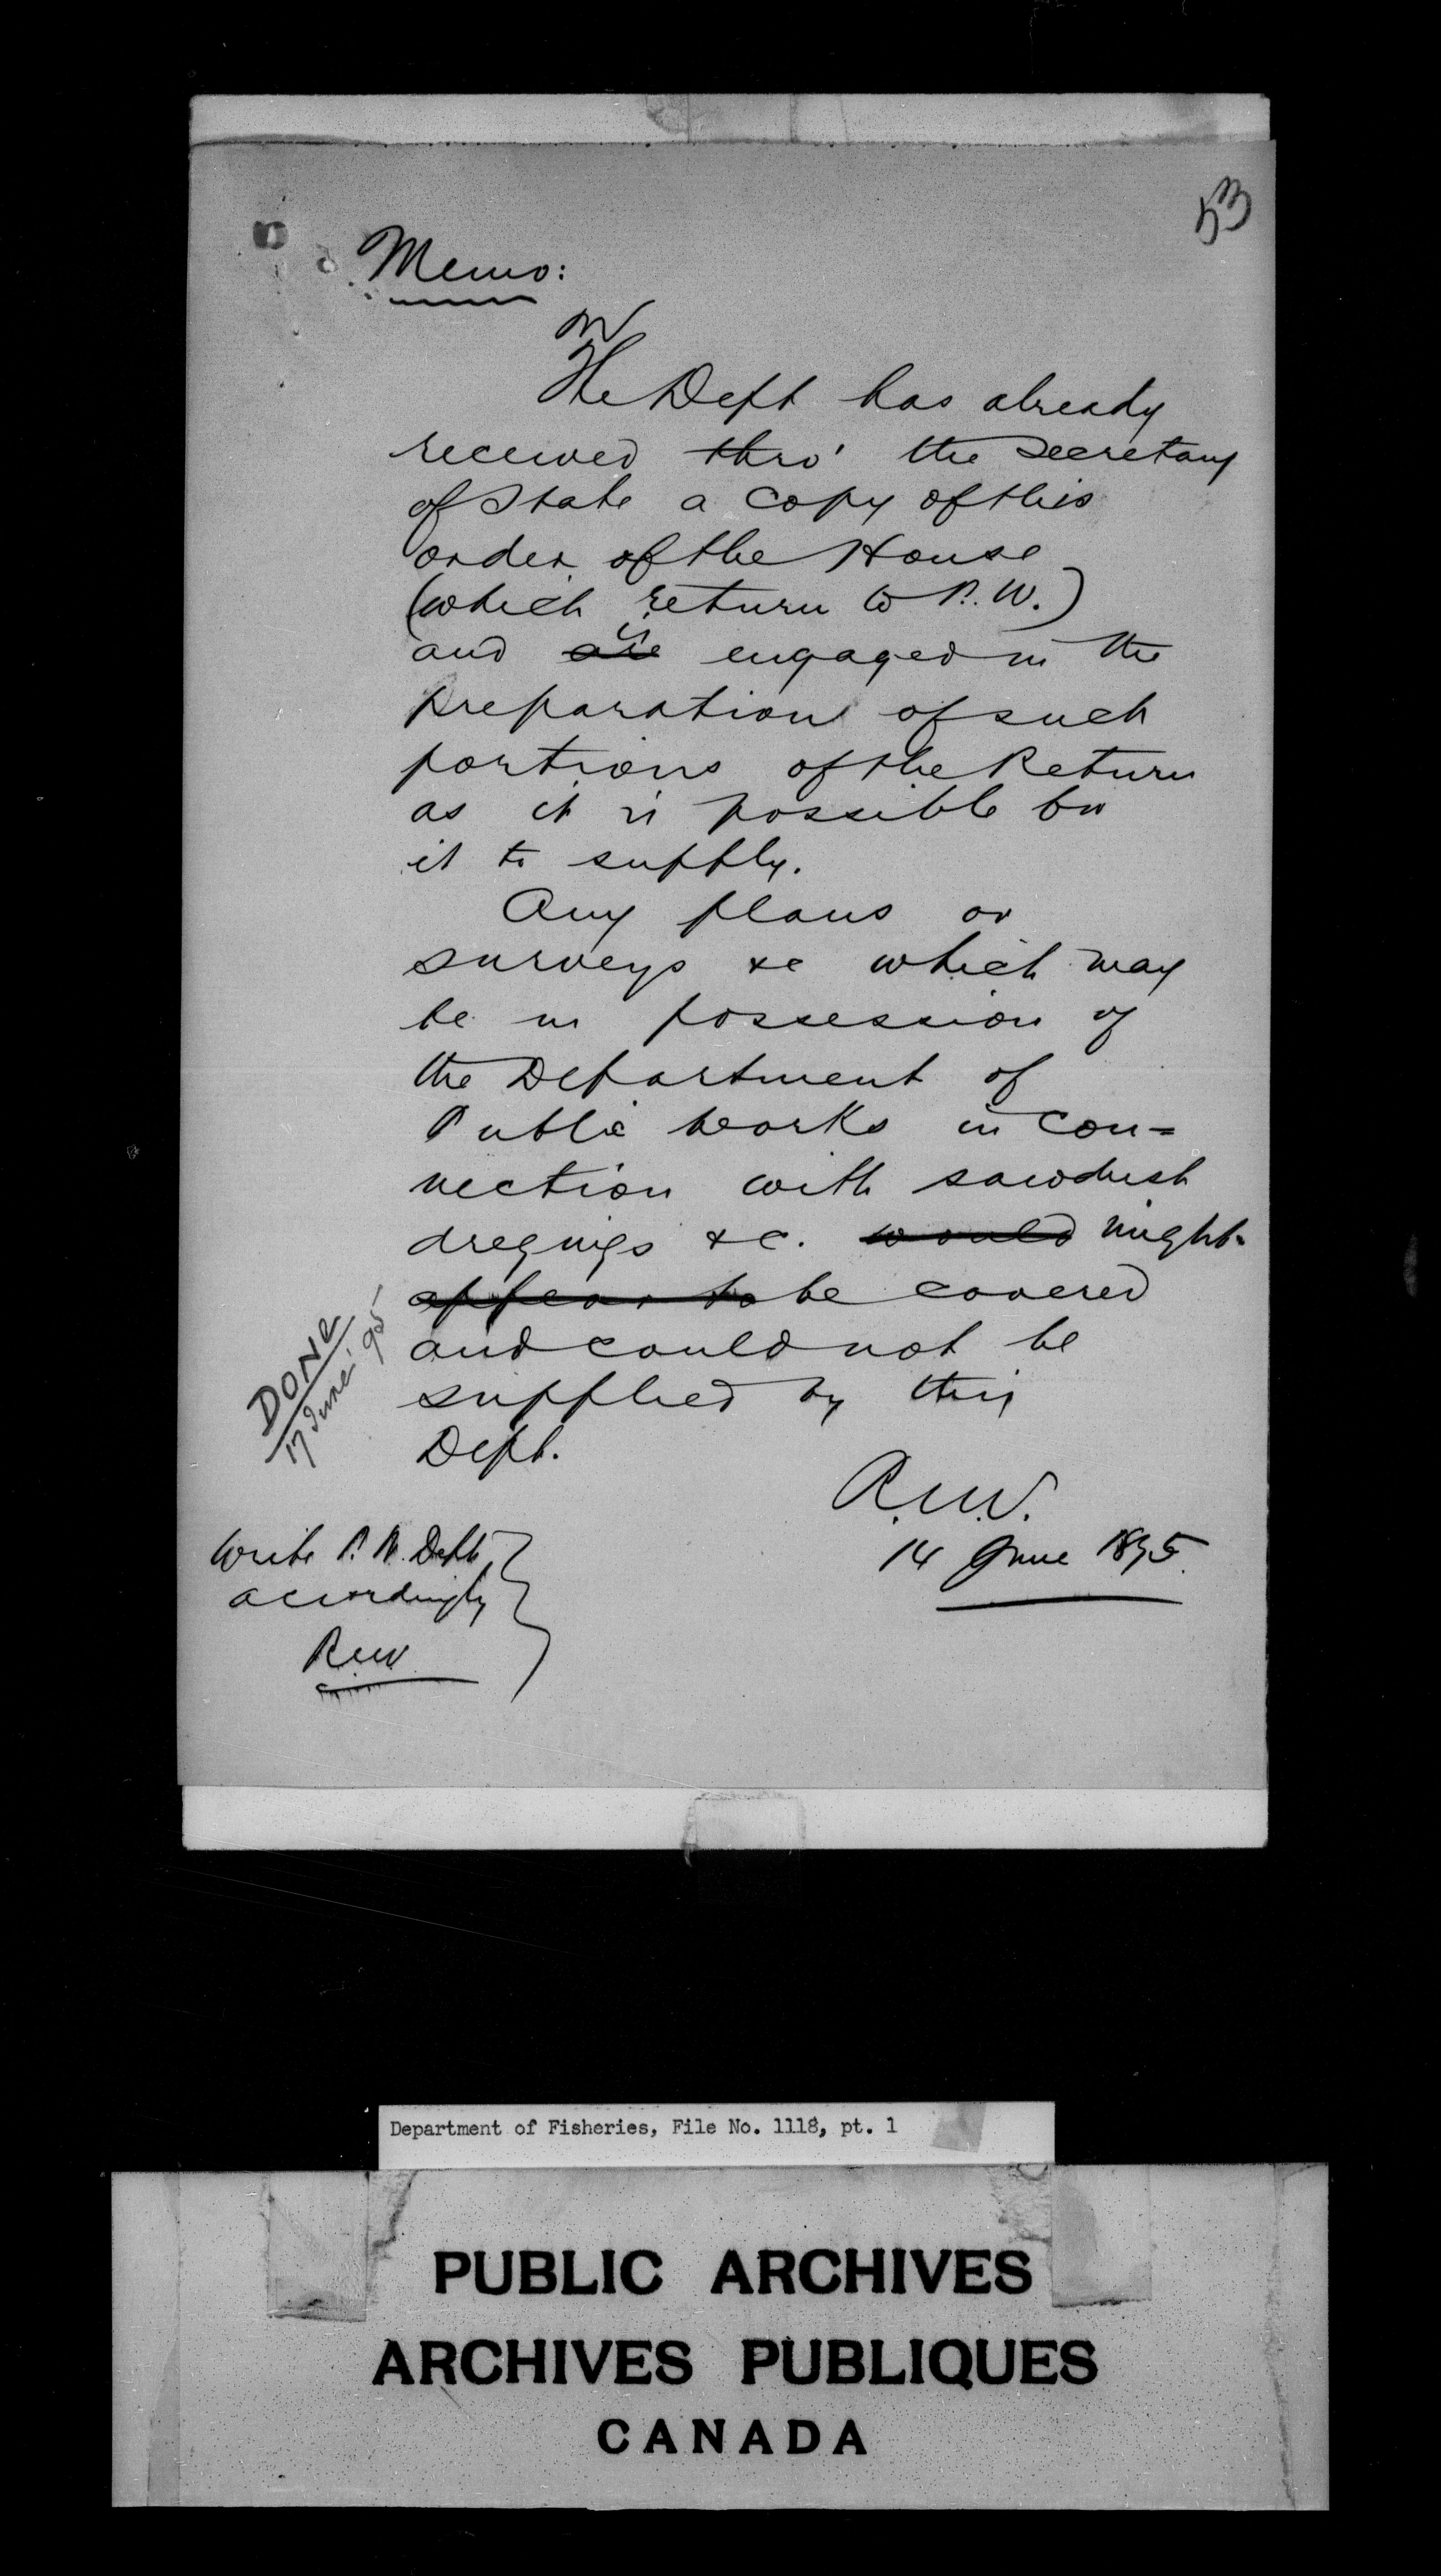 53
Memo:
The Dept has already
received thro' the Secretary
of State a copy of this
order of the House
(which return to P.W.)
and are is engaged in the
preparation of such
portions of the Return
as it is possible for
it to supply.
Any plans or
surveys &c which may
be in possession of
the Department of
Public Works in con=
nection with sawdust
dregings &c. would might
appear to be covered
and could not be
supplied by this
Dept.
R.N.V.
14 June 1895.
DONE
17 June '95
Write P.W. Dept
accordingly
Department of Fisheries, File No. 1118, pt. 1
PUBLIC ARCHIVES
ARCHIVES PUBLIQUES
CANADA